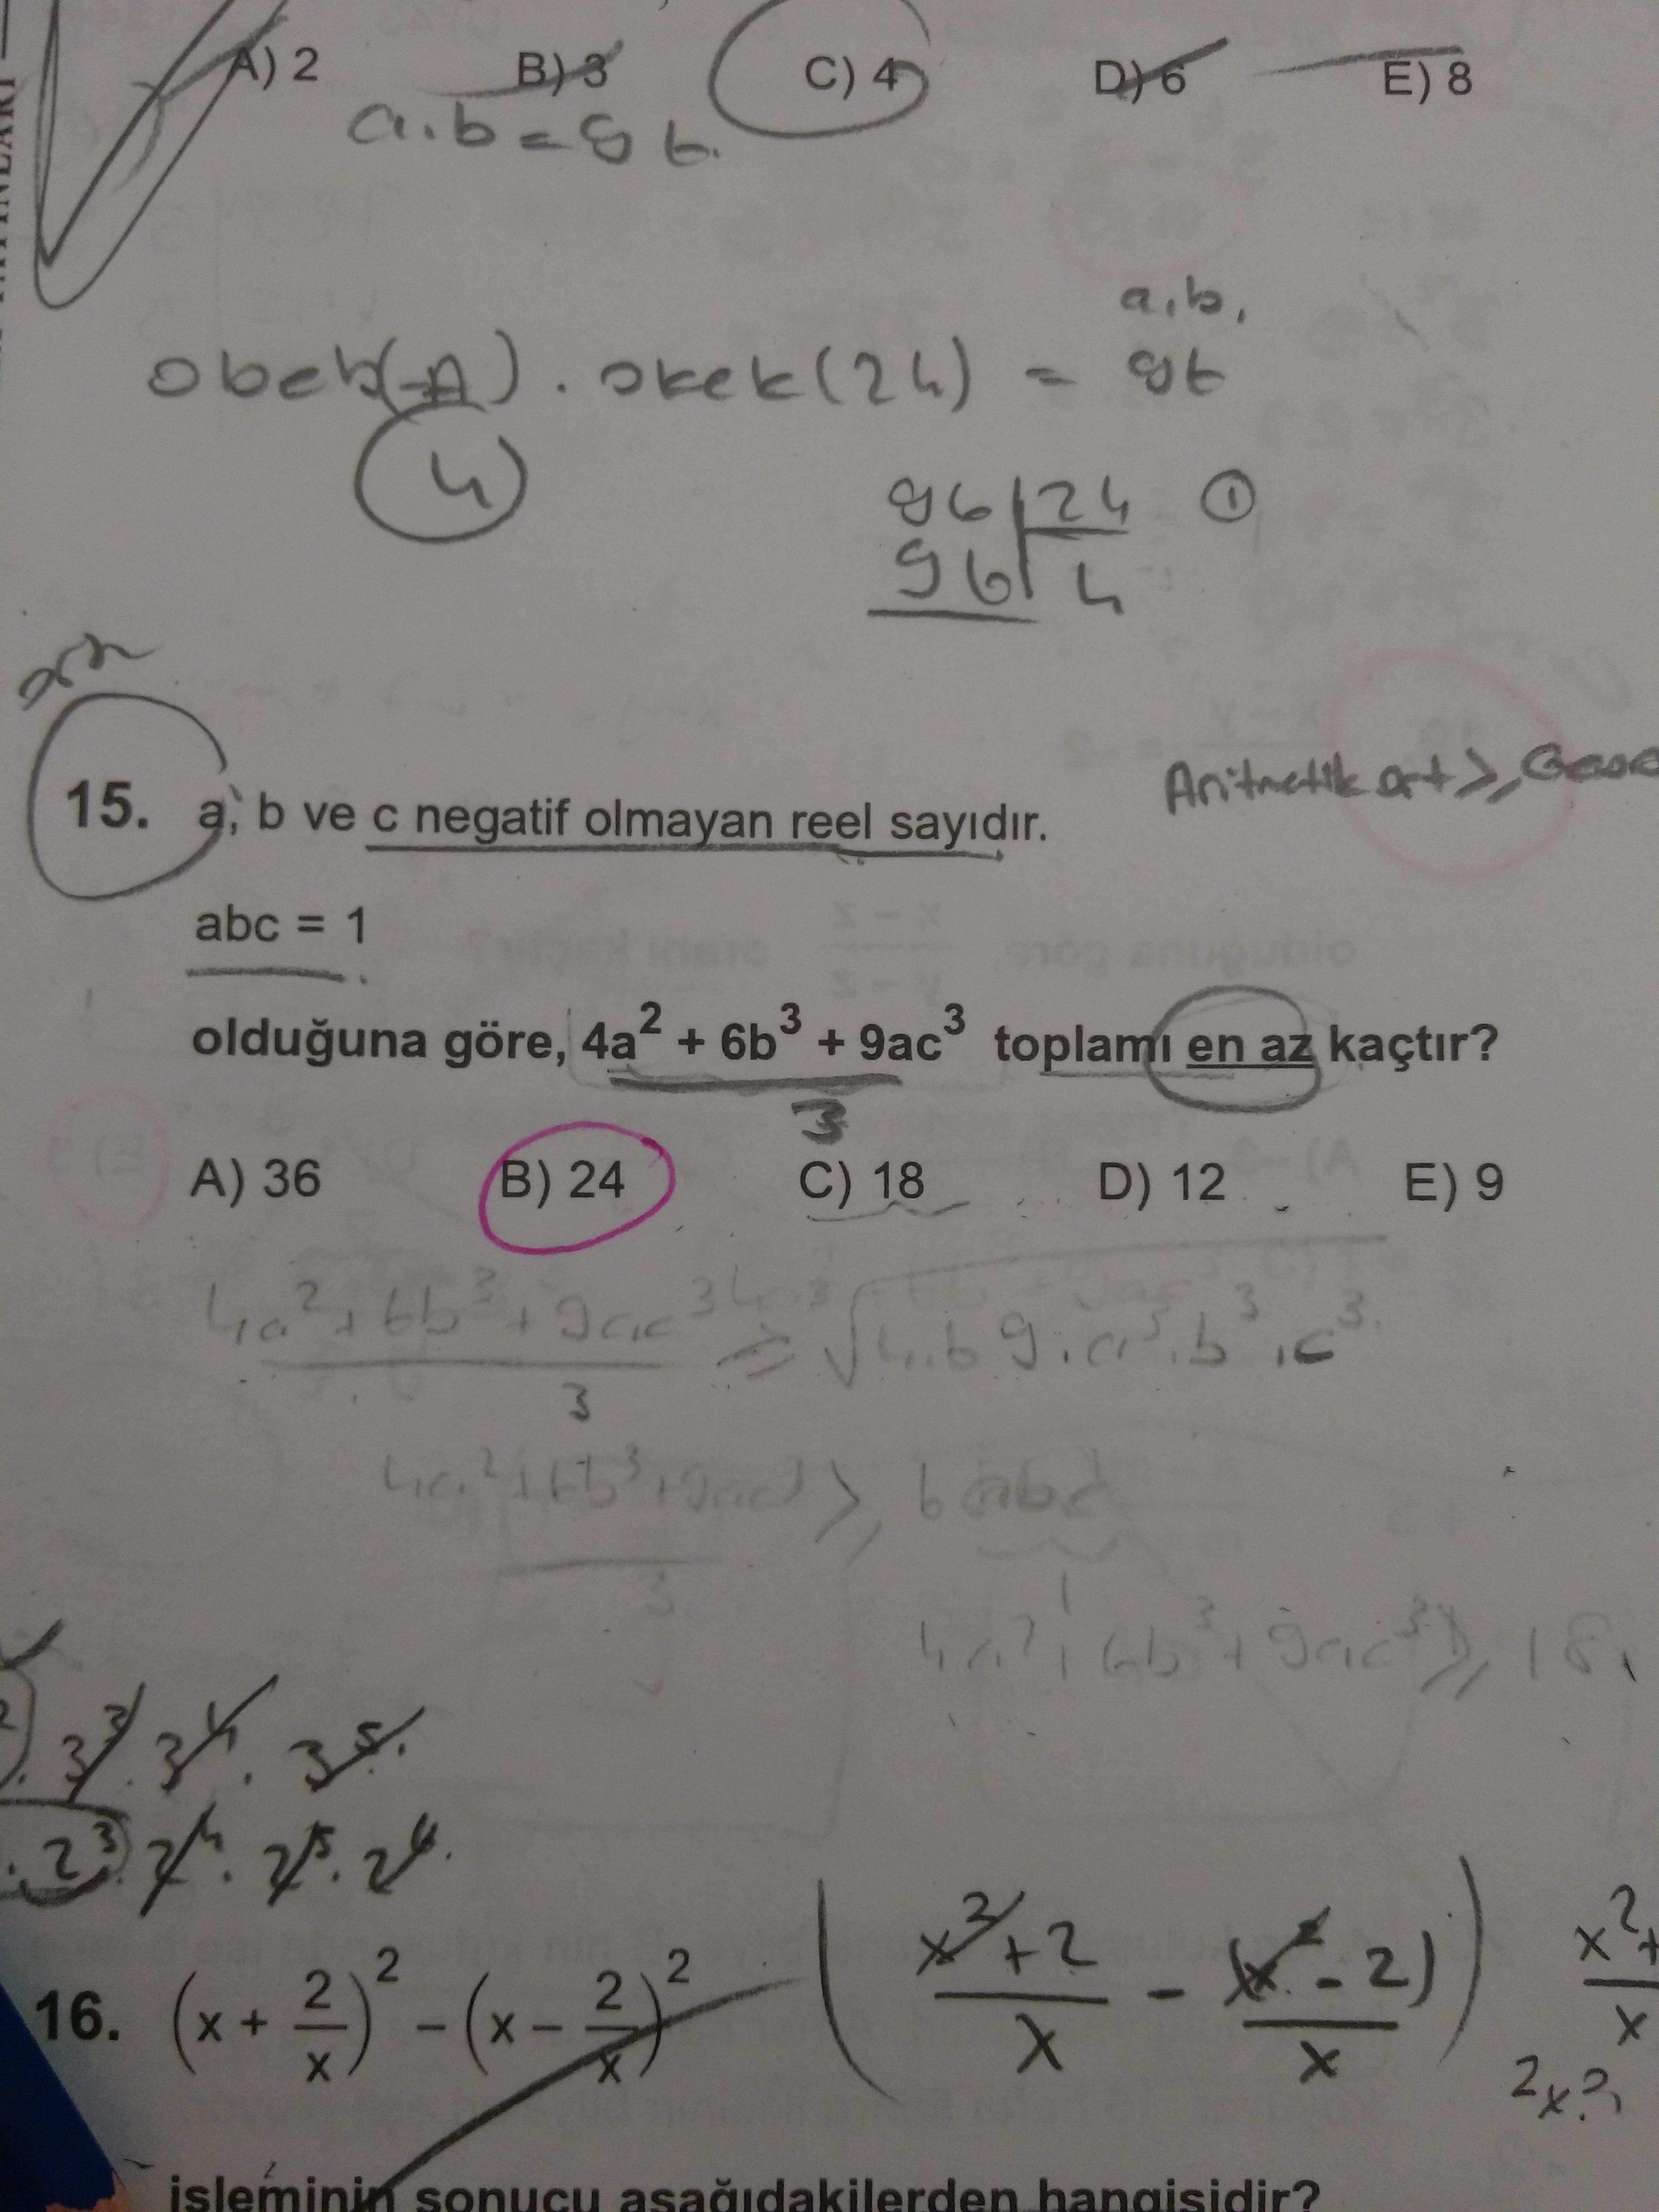 A) 2 B) 3 C) 4 D) 6 E) 8
a.b = 96.
a.b.
obeb( ) . okek(24) = 96
4
96 | 24 ①
96 | 4
Aritmetik ort ≥
15. a, b ve c negatif olmayan reel sayıdır.
abc = 1
olduğuna göre, 4a² + 6b³ + 9ac³ toplamı en az kaçtır?
3
A) 36 B) 24 C) 18 D) 12 E) 9
4a² + 6b³ + 9ac³ ≥ ³√4.6.9.a³.b³.c³
3
4a² + 6b³ + 9ac³ ≥ 6 abc
3
1
4a² + 6b³ + 9ac³ ≥ 18
3³ . 3⁴ . 3⁵.
. 2³ . 2⁴ . 2⁵ . 2⁶.
16. (x + 2/x)² − (x − 2/x)² (x² + 2 / x − (x² − 2) / x) x² + / x
işleminin sonucu aşağıdakilerden hangisidir?